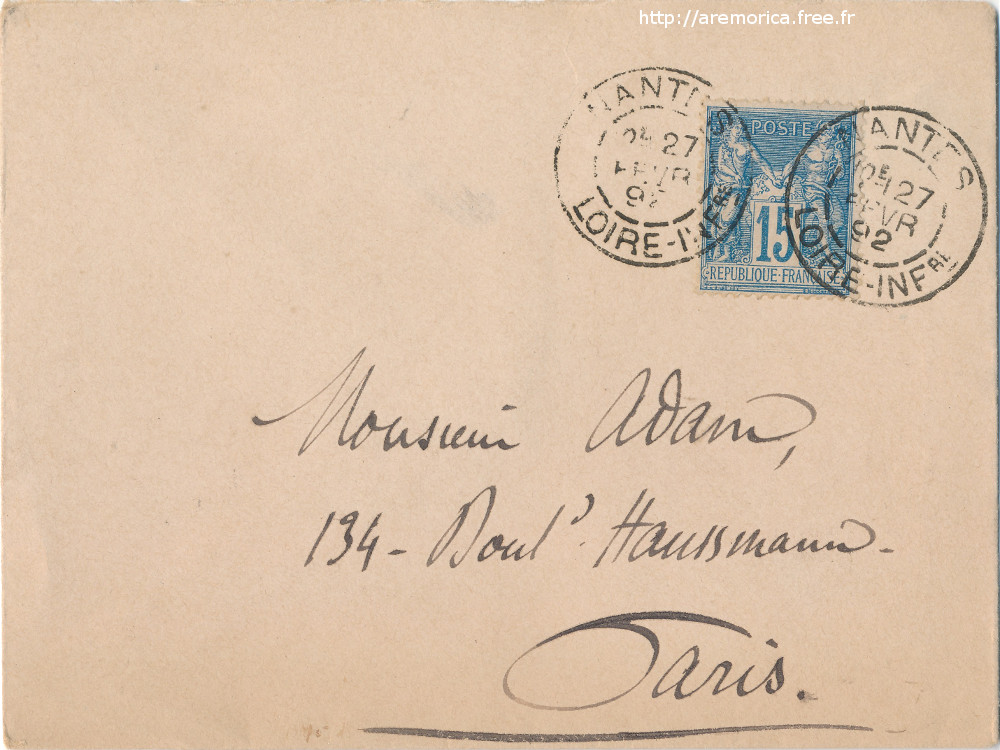 http://aremorica.free.fr
NANTES
27
FEVR
92
LOIRE-INFRE
POSTE
15
REPUBLIQUE-FRANÇAISE
NANTES
27
FEVR
92
LOIRE-INFRE
Monsieur Adam,
134- Boul.d Haussmann-
Paris.